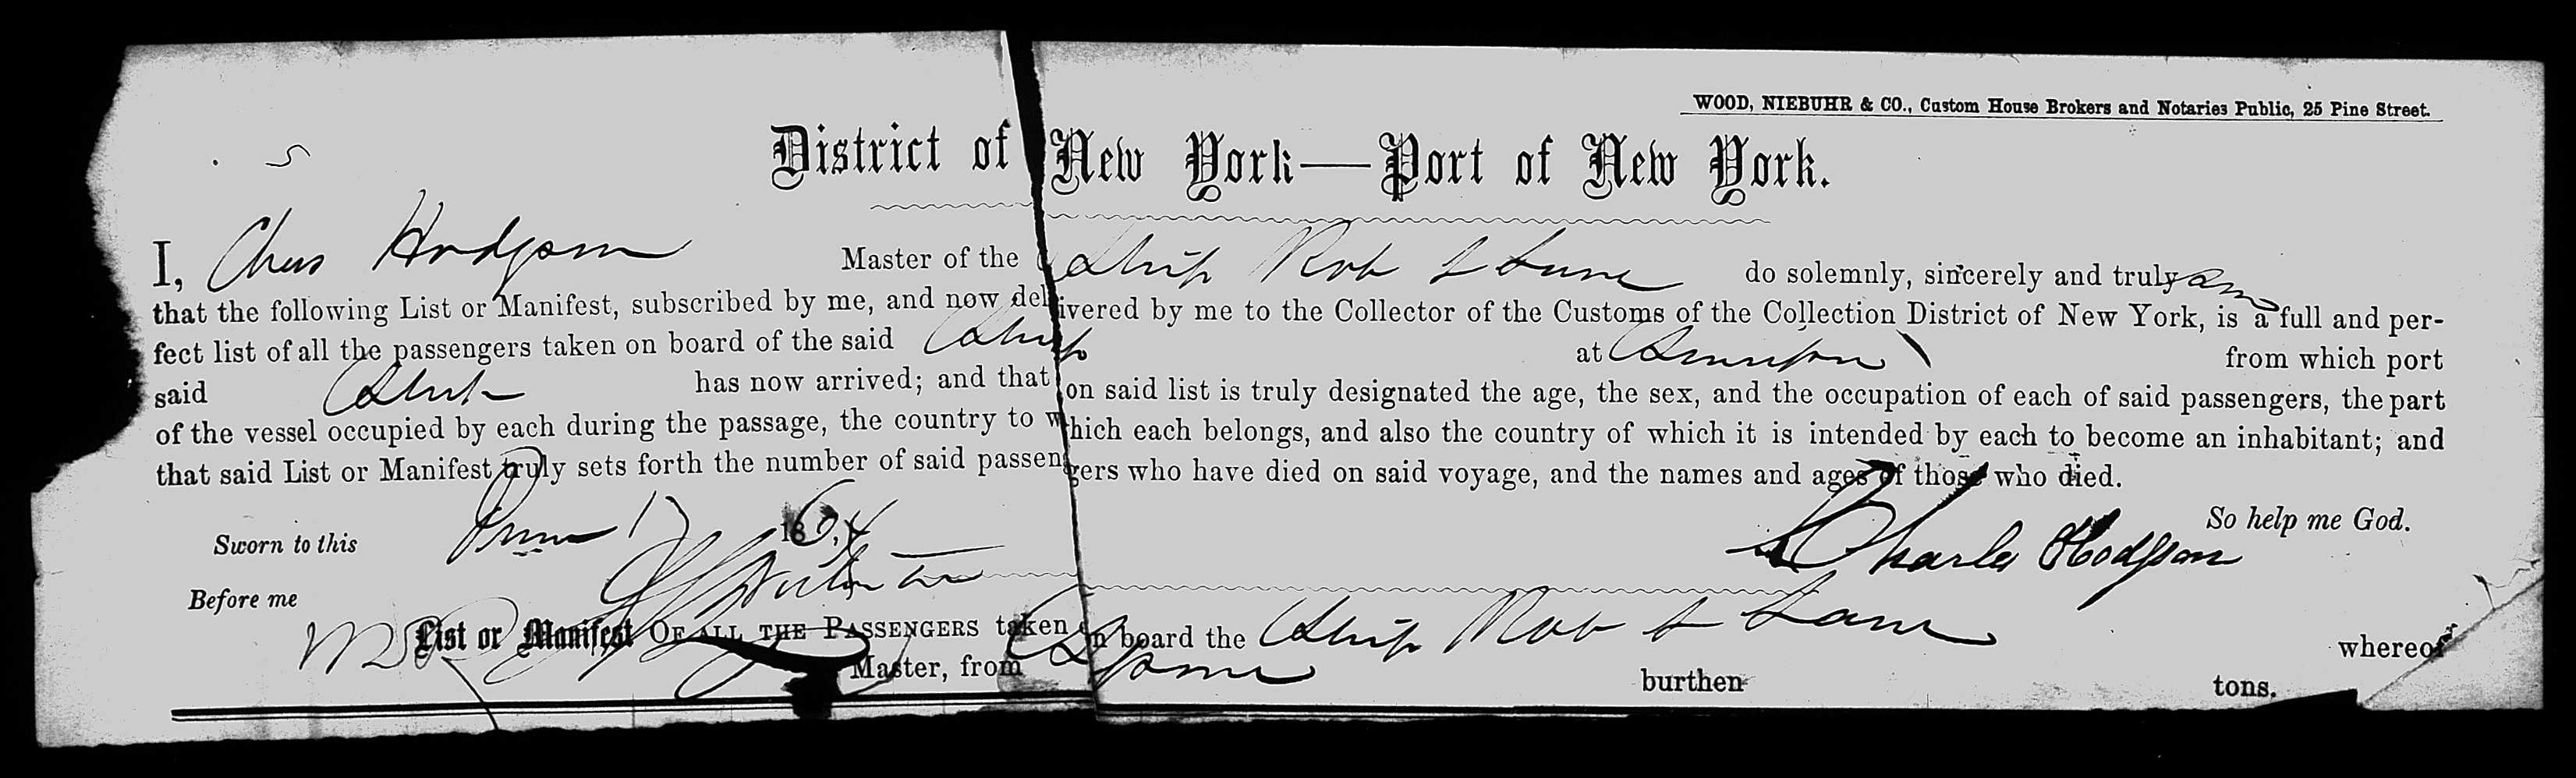 WOOD, NIEBUHR & CO., Custom House Brokers and Notaries Public, 25 Pine Street.
5
District of New York—Port of New York.
I, Chas Hodgson Master of the Ship Rob L Lane do solemnly, sincerely and truly
that the following List or Manifest, subscribed by me, and now delivered by me to the Collector of the Customs of the Collection District of New York, is a full and per-
fect list of all the passengers taken on board of the said Ship at from which port
said Ship has now arrived; and that on said list is truly designated the age, the sex, and the occupation of each of said passengers, the part
of the vessel occupied by each during the passage, the country to which each belongs, and also the country of which it is intended by each to become an inhabitant; and
that said List or Manifest truly sets forth the number of said passengers who have died on said voyage, and the names and ages of those who died.
So help me God.
Sworn to this June 17 1864
Charles Hodgson
Before me
List or Manifest OF ALL THE PASSENGERS taken on board the Ship Rob L Lane whereof
Master, from burthen tons.